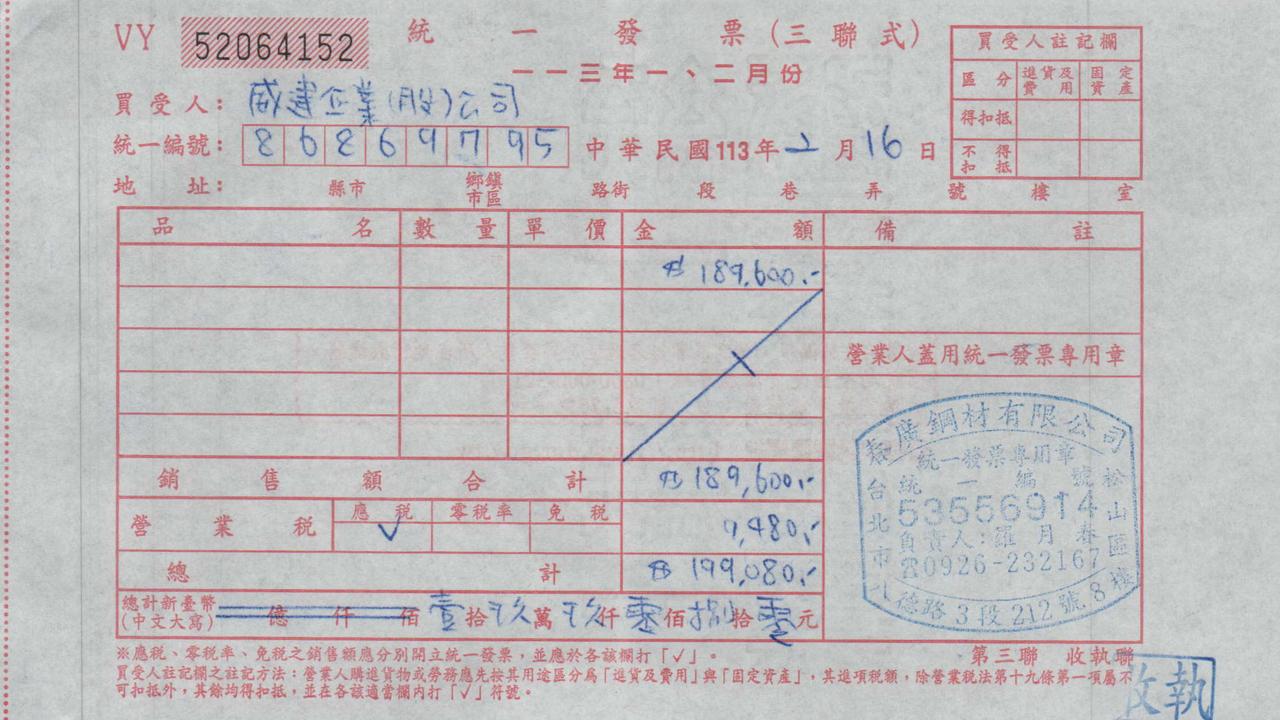 VY 52064152 統一發票(三聯式)
一一三年一、二月份
買受人註記欄
區分 進貨及費用 固定資產
得扣抵
不得扣抵
買受人: 威建企業(股)公司
統一編號: 86869795 中華民國113年2月16日
地址: 縣市 鄉鎮市區 路街 段 巷 弄 號 樓 室
品名 數量 單價 金額 備註
189,600.-
營業人蓋用統一發票專用章
銷售額合計 189,600.-
營業稅 應稅 ✓ 零稅率 免稅 9,480.-
總計 199,080.-
總計新臺幣(中文大寫) 億 仟 佰 壹拾玖萬玖仟零佰捌拾零元
廣鋼材有限公司
統一發票專用章
統一編號
53556914
負責人:羅月春
☎0926-232167
台北市松山區八德路3段212號8樓
※應稅、零稅率、免稅之銷售額應分別開立統一發票,並應於各該欄打「✓」。
第三聯 收執聯
買受人註記欄之註記方法:營業人購進貨物或勞務應先按其用途區分為「進貨及費用」與「固定資產」,其進項稅額,除營業稅法第十九條第一項屬不
可扣抵外,其餘均得扣抵,並在各該適當欄內打「✓」符號。
收執